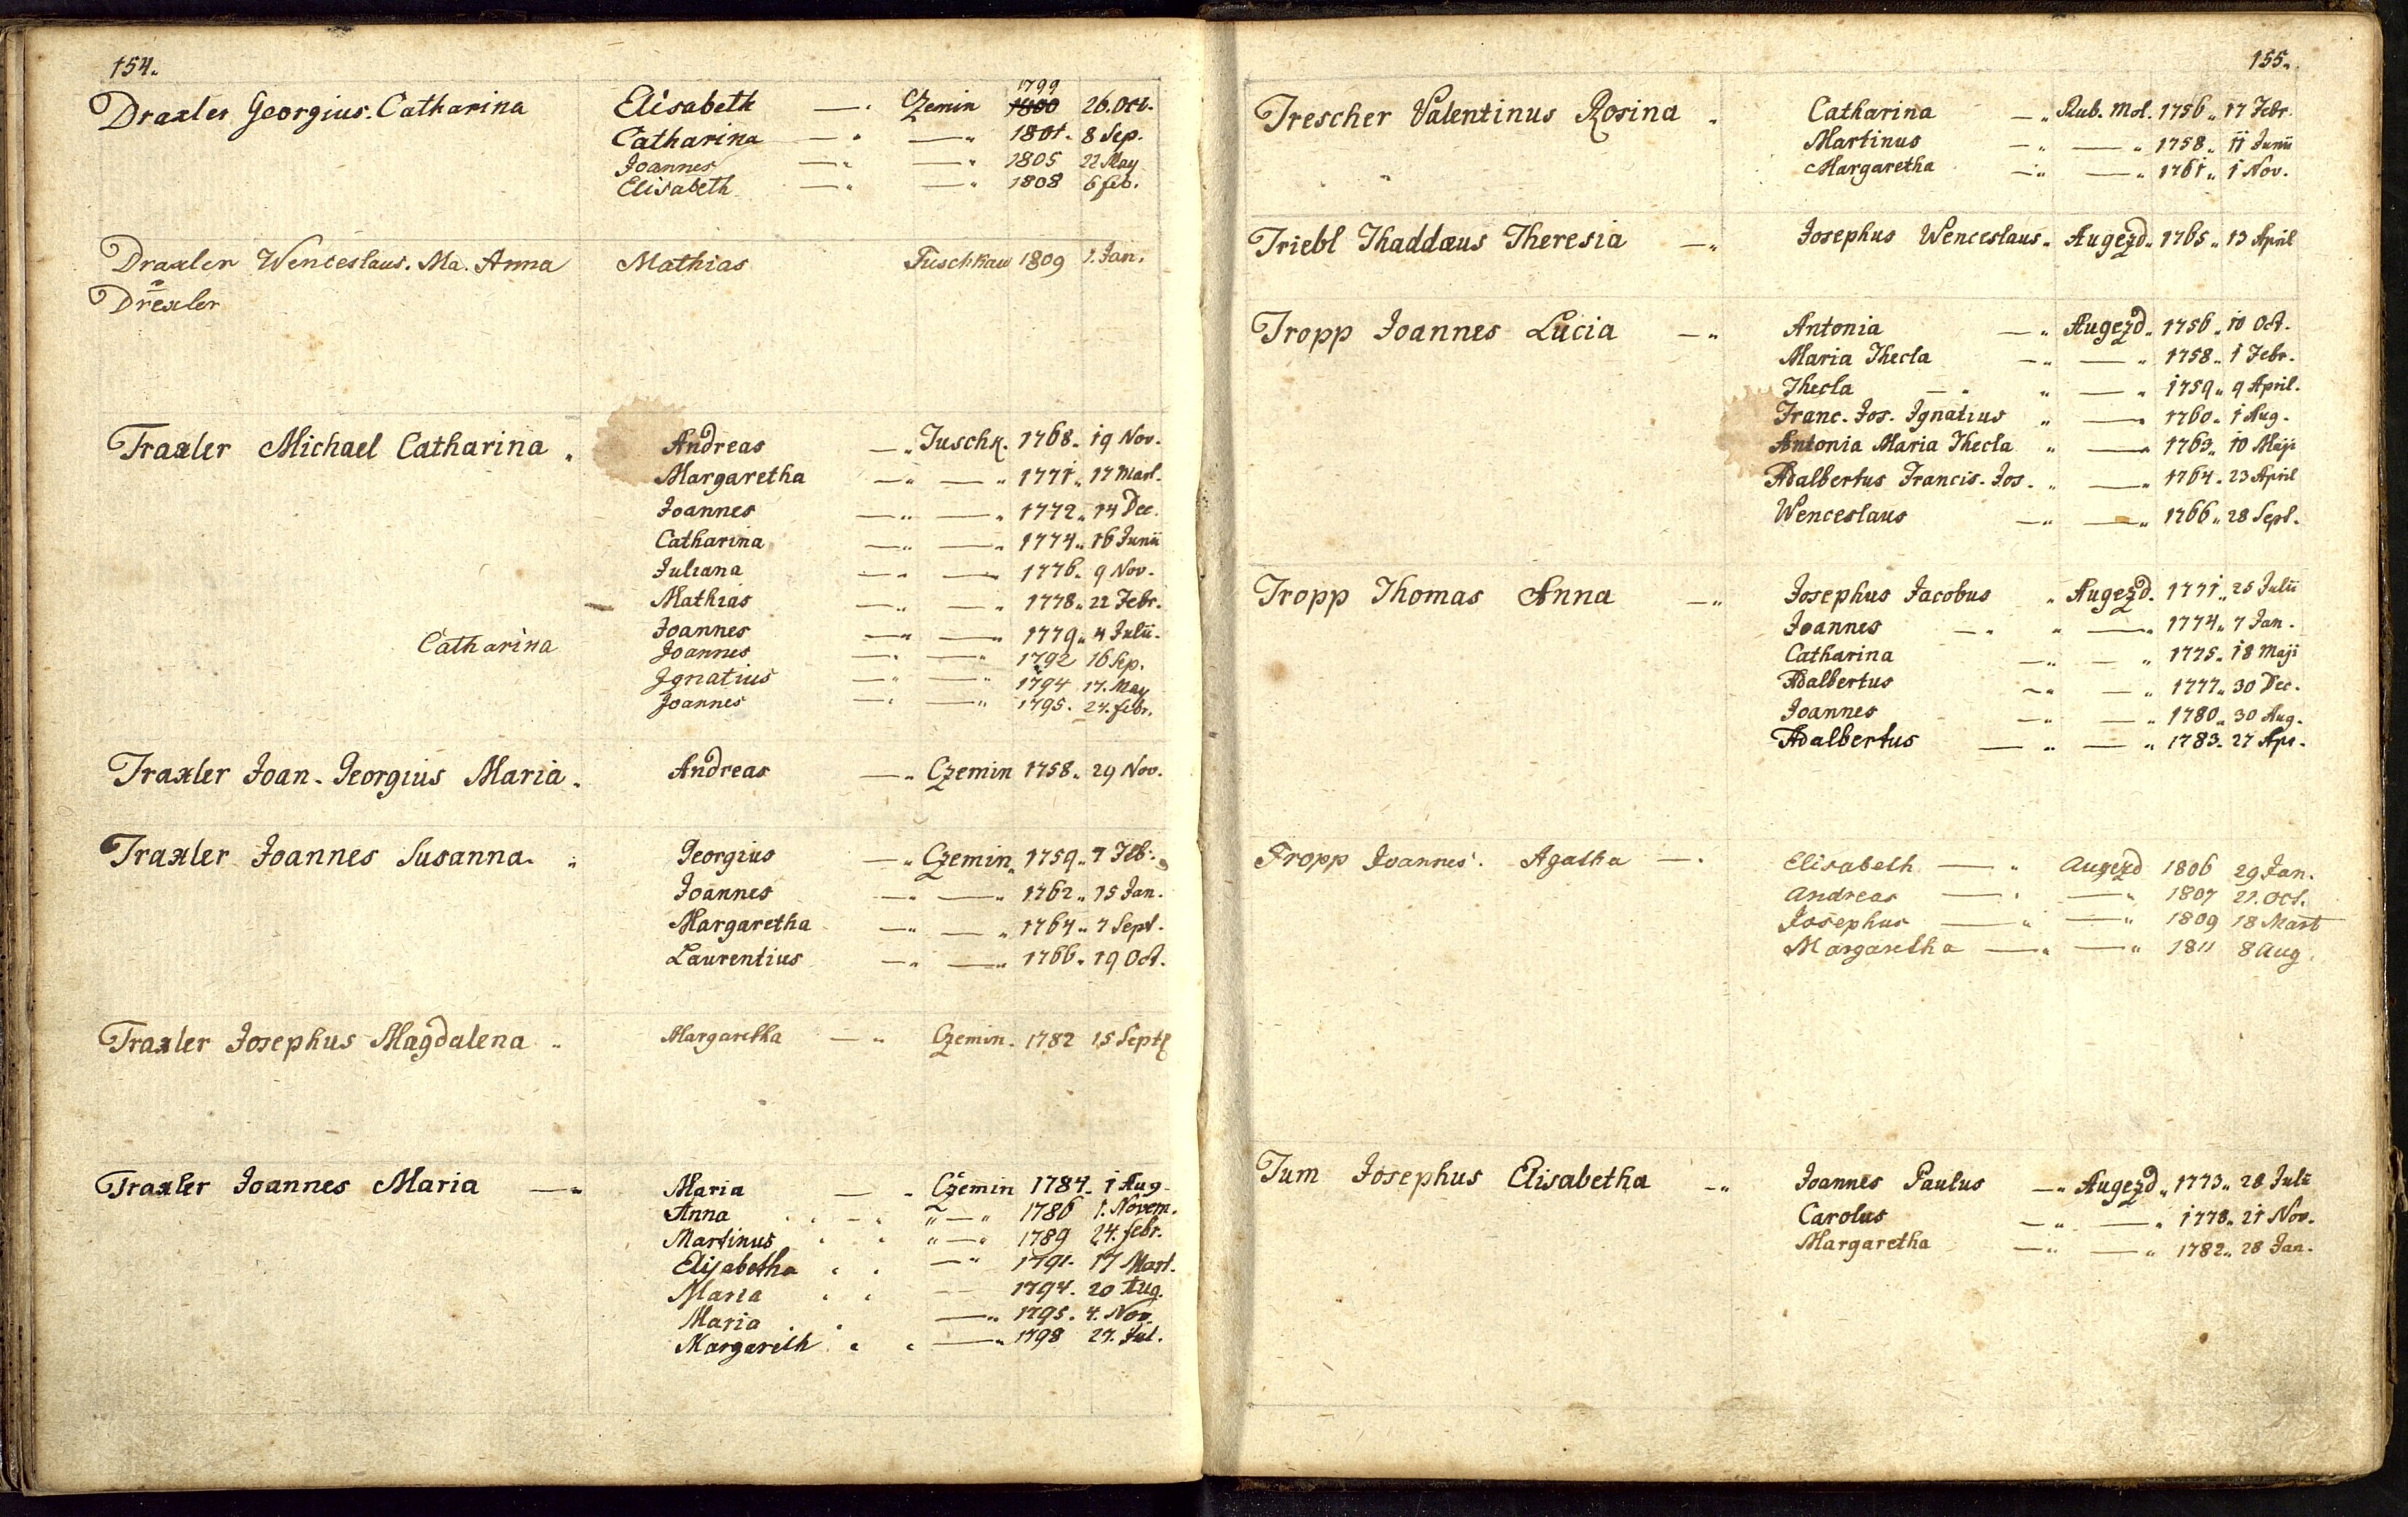 154.
Draxler Georgius. Catharina Elisabeth —. Czemin 1799 1800 26. Oct.
Catharina —. —„ 1801. 8 Sep.
Joannes —„ —„ 1805 22 May
Elisabeth —„ —„ 1808 6 feb.
Draxler Wenceslaus. Ma. Anna Mathias Tuschkau 1809 1. Jan.
Drexler
Traxler Michael Catharina „ Andreas —„ Tuschk. 1768„ 19 Nov.
Margaretha —„ —„ 1771„ 17 Mart.
Joannes —„ —„ 1772„ 14 Dec.
Catharina —„ —„ 1774„ 16 Junii
Juliana —„ —„ 1776„ 9 Nov.
Mathias —„ —„ 1778„ 22 Febr.
Joannes —„ —„ 1779„ 4 Julii.
Catharina Joannes —„ —„ 1792 16 Sep.
Ignatius —„ —„ 1794 17. May
Joannes —„ —„ 1795. 24. febr.
Traxler Joan. Georgius Maria „ Andreas —„ Czemin 1758„ 29 Nov.
Traxler Joannes Susanna. „ Georgius —„ Czemin„ 1759„ 7 Feb.
Joannes —„ —„ 1762„ 15 Jan.
Margaretha —„ —„ 1764„ 7 Sept.
Laurentius —„ —„ 1766„ 19 Oct.
Traxler Josephus Magdalena „ Margaretha —„ Czemin. 1782 15 Sept
Traxler Joannes Maria —„ Maria — „ Czemin 1784. 1 Aug.
Anna „—„ 1786 1. Novem.
Martinus „—„ 1789 24. febr.
Elisabetha —„ 1791. 17 Mart.
Maria — 1794. 20 Aug.
Maria —„ 1795. 4. Nov.
Margareth —„ 1798 27. Jul.
155.
Trescher Valentinus Rosina „ Catharina —„ Rub. Mol. 1756„ 17 Febr.
Martinus —„ —„ 1758„ 11 Junii
Margaretha —„ —„ 1761„ 1 Nov.
Triebl Thaddæus Theresia —„ Josephus Wenceslaus„ Augezd„ 1765„ 13 April
Tropp Joannes Lucia —„ Antonia —„ Augezd„ 1756„ 10 Oct.
Maria Thecla —„ —„ 1758„ 1 Febr.
Thecla —„ „ —„ 1759„ 9 April.
Franc. Jos. Ignatius „ —„ 1760„ 1 Aug.
Antonia Maria Thecla „ —„ 1763„ 10 Maji
Adalbertus Francis. Jos. „ —„ 1764„ 23 April
Wenceslaus —„ —„ 1766„ 28 Sept.
Tropp Thomas Anna —„ Josephus Jacobus „ Augezd. 1771„ 25 Julii
Joannes —„ „ —„ 1774„ 7 Jan.
Catharina —„ —„ 1775„ 18 Maji
Adalbertus —„ —„ 1777„ 30 Dec.
Joannes —„ —„ 1780„ 30 Aug.
Adalbertus —„ —„ 1783„ 27 Apr.
Tropp Joannes. Agatha —. Elisabeth —„ Augezd 1806 29 Jan.
Andreas —„ —„ 1807 21. Oct.
Josephus —„ —„ 1809 18 Mart
Margaretha —„ —„ 1811 8 Aug.
Tum Josephus Elisabetha —„ Joannes Paulus —„ Augezd„ 1773„ 28 Julii
Carolus —„ —„ 1778„ 21 Nov.
Margaretha —„ —„ 1782„ 28 Jan.